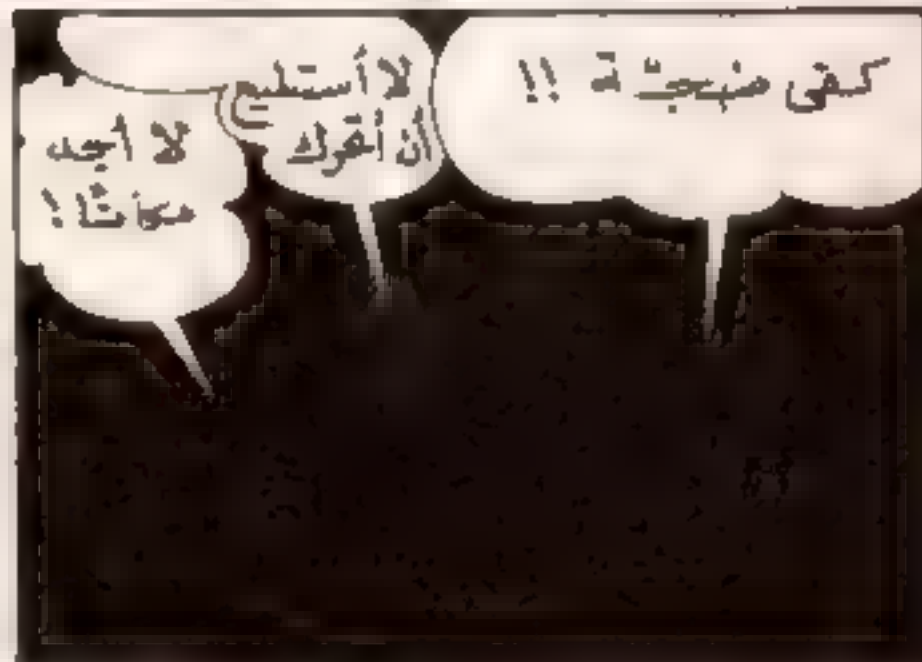 كفى ضجّة !!
لا أستطيع
أن أتحرك
لا أجد
مكانًا !